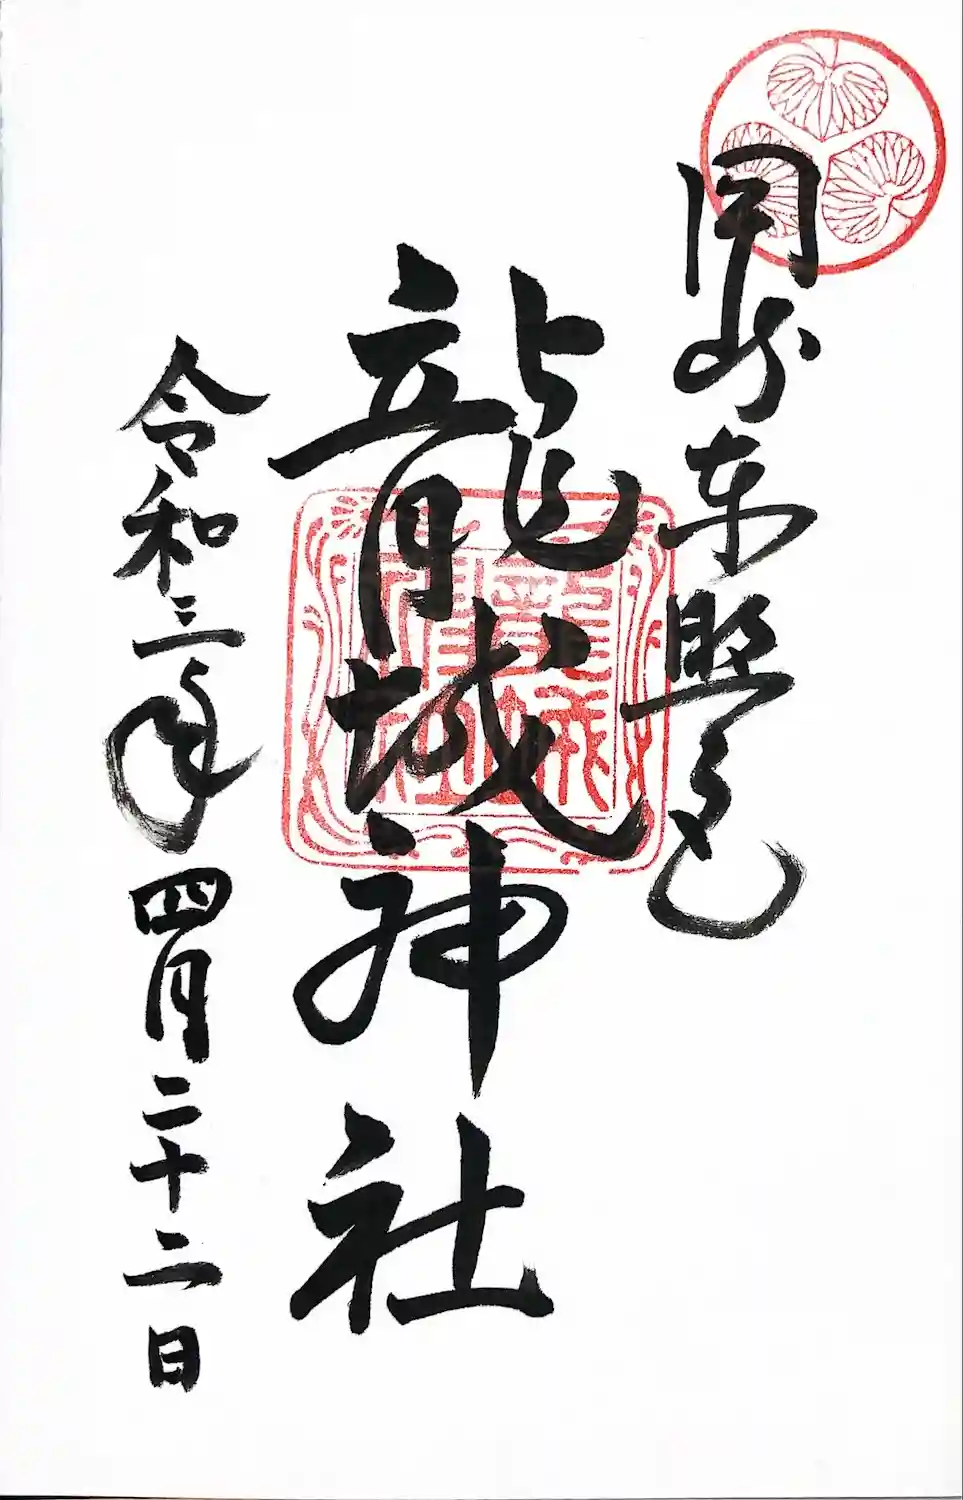 岡崎東照宮
龍城神社
令和三年四月二十二日
龍城神社